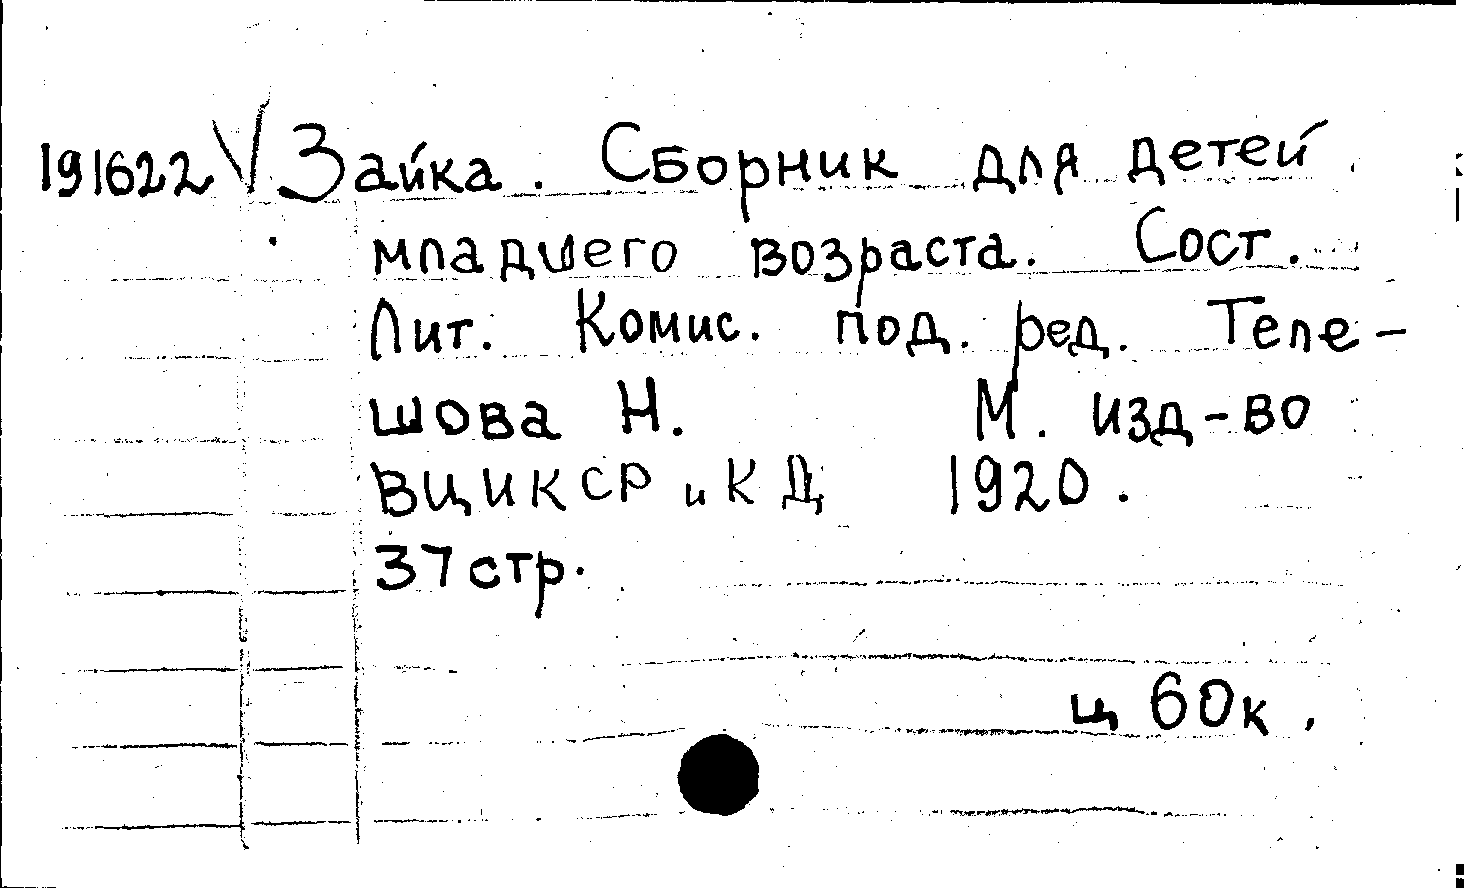 191622 V Зайка. Сборник для детей
младшего возраста. Сост.
Лит. Комис. под. ред. Теле-
шова Н. М. изд-во
ВЦИКСР и КД 1920.
37 стр.
ц 60к.